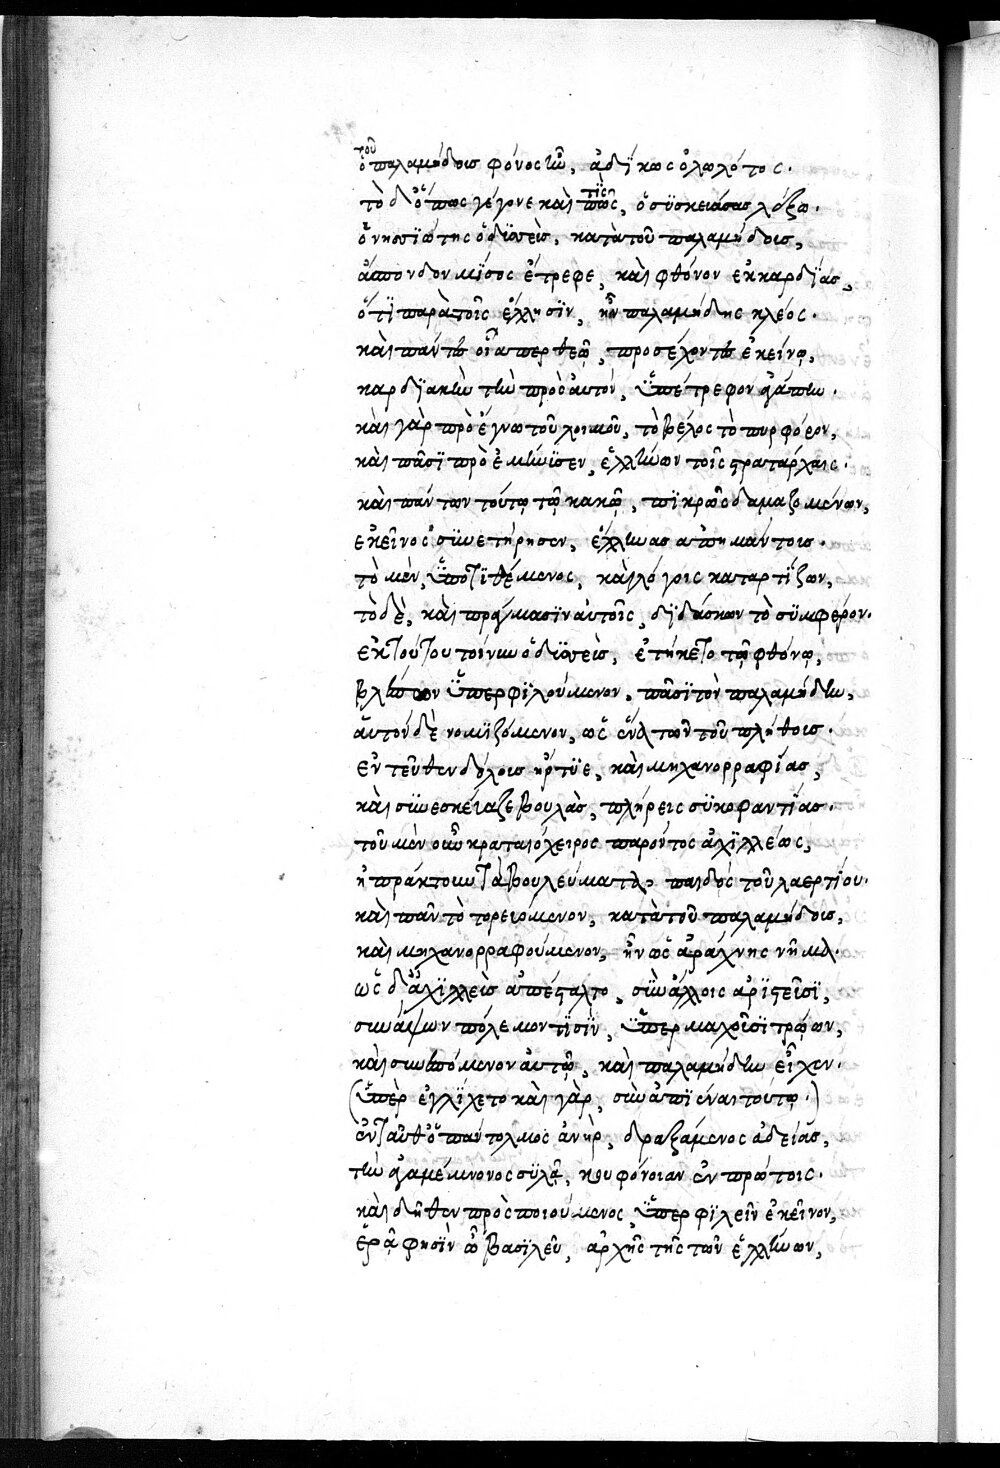 τοῦ
ὁ παλαμήδους φόνος ἦν, ἀδΐκως ὀλωλότος.
τὸ δ᾽ ὅπως γέγονε καὶ πῶς, τίς ὁ σϋσκευάσας λέξω.
ὁ νησϊώτης ὀδϋσεὺς, κατὰ τοῦ παλαμήδους,
ἄσπονδον μῖσος ἔτρεφε, καὶ φθόνον ἐκ καρδΐας,
ὅτϊ παρὰ τοῖς ἕλλησϊν, ἦν παλαμήδης κλέος.
καὶ πάντες οἷάπερ θεῷ, προσέχοντες ἐκείνῳ,
καρδϊακὴν τὴν πρὸς αὐτὸν, ὑπέτρεφον ἀγάπην.
καὶ γὰρ προέγνω τοῦ λοιμοῦ, τὸ βέλος τὸ πυρφόρον,
καὶ πᾶσϊ προεμήνϋσεν, ἑλλήνων τοῖς στρατάρχαις.
καὶ πάντων τούτῳ τῷ κακῷ, πϊκρῶς δαμαζομένων,
ἐκεῖνος σϋνετήρησεν, ἕλληνας ἀπημάντους.
τὸ μὲν, ὑποτϊθέμενος, καὶ λόγοις καταρτΐζων,
τὸ δὲ, καὶ πράγμασϊν αὐτοῖς, δϊδάσκων τὸ σϋμφέρον.
ἐκ τούτου τοίνυν ὀδϋσεὺς, ἐτήκετο τῷ φθόνῳ,
βλέπων ὑπερφϊλούμενον, πᾶσϊ τὸν παλαμήδην,
αὐτὸν δὲ νομϊζόμενον, ὡς ἕνα τῶν τοῦ πλήθους.
ἐντεῦθεν δόλους ἤρτϋε, καὶ μηχανορραφΐας,
καὶ σϋνεσκεύαζε βουλὰς, πλήρεις σϋκοφαντΐας.
τοῦ μὲν οὖν κραταιόχειρος παρόντος ἀχϊλλέως,
ἤπράκτουν τὰ βουλεύματα, παιδὸς τοῦ λαερτΐου.
καὶ πᾶν τὸ τορευόμενον, κατὰ τοῦ παλαμήδους,
καὶ μηχανορραφούμενον, ἦν ὡς ἀράχνης νῆμα.
ὡς δ᾽ ἀχϊλλεὺς ἀπέσταλτο, σὺν ἄλλοις ἀρϊστεῦσϊ,
συνάψων πόλεμον τϊσὶν, ὑπερμαχοῦσϊ τρώων,
καὶ συνεπόμενον αὐτῷ, καὶ παλαμήδην εἶχεν.
(ὑπερεγλΐχετο καὶ γὰρ, σὺν ἀπϊέναι τούτῳ.)
ἐνταῦθ᾽ ὁ πάντολμος ἀνὴρ, δραξάμενος ἀδείας,
τὴν ἀγαμέμνονος σϋλᾷ, κουφόνοιαν ἐν πρώτοις.
καὶ δῆθεν προσποιούμενος, ὑπερφϊλεῖν ἐκεῖνον,
ἐρᾷ φησῒν ὦ βασϊλεῦ, ἀρχῆς τῆς τῶν ἑλλήνων,